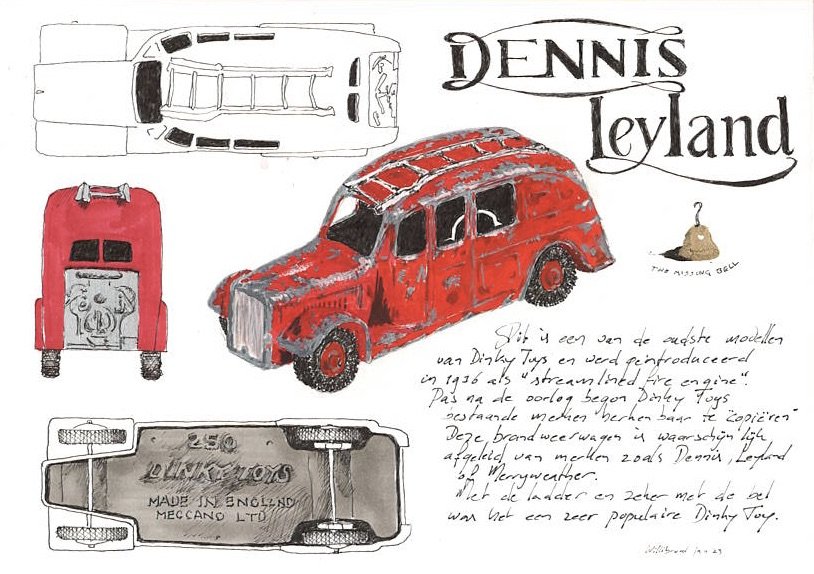 DENNIS
Leyland
THE MISSING BELL
Dit is een van de oudste modellen
van Dinky Toys en werd geïntroduceerd
in 1936 als "streamlined fire engine".
Pas na de oorlog begon Dinky Toys
bestaande merken herkenbaar te "copiëren"
Deze brandweerwagen is waarschijnlijk
afgeleid van merken zoals Dennis, Leyland
of Merryweather.
Met de ladder en zeker met de bel
was het een zeer populaire Dinky Toy.
250
DINKY TOYS
MADE IN ENGLAND
MECCANO LTD